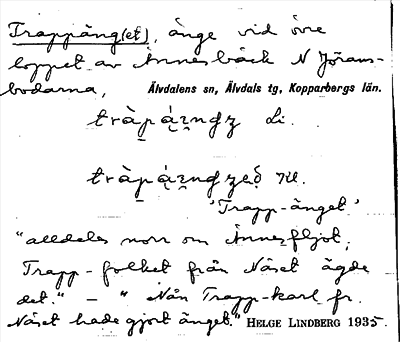 Trappäng(et), änge vid övre
loppet av Ännesbäck N Jörams-
bodarna, Älvdalens sn, Älvdals tg, Kopparbergs län.
Li.
Ill.
'Trapp-änget'
"alldeles norr om Ännesfljot,
Trapp-folket från Näset ägde
det." – "Nån Trapp-karl fr.
Näset hade gjort änget." HELGE LINDBERG 1935.